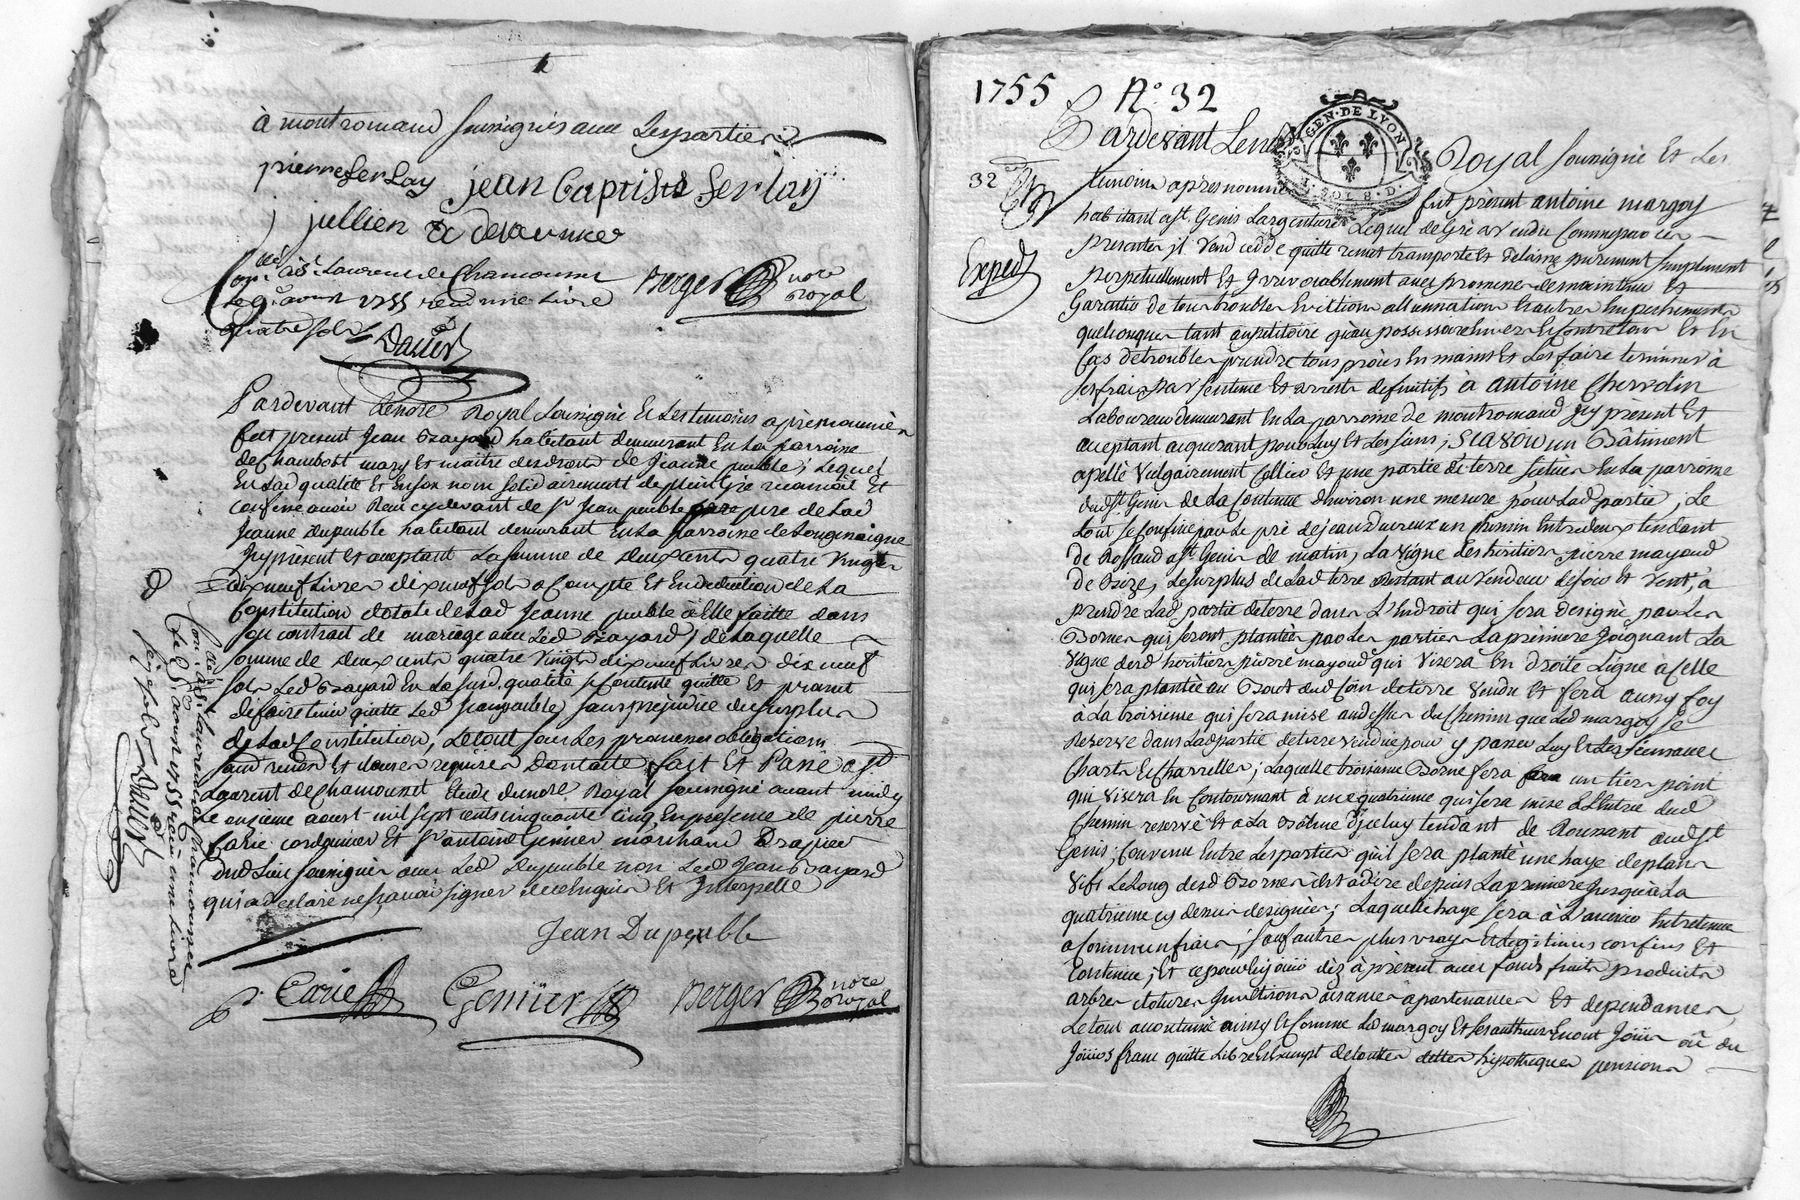 à montromand soussignés avec les parties
pierre ferlay jean baptiste ferlay
j jullien
Con.lé à St Laurent de Chamousset
le 9 aoust 1755 reçu une Livre
quatre sols
Berger no.re Royal
Pardevant Lenore Royal soussigné et les temoins après nommés
fut present Jean Bayard habitant demeurant en la parroisse
de Chambost mary et maitre des droits de Jeanne puble; Lequel
en lad qualité et en son nom solidairement de plein gré reconnoit et
confesse avoir reçu cy devant de Sr Jean puble pere de lad
Jeanne dupuble habitant demeurant en la parroisse de Longessaigne
jcy présent et acceptant La somme de deux cents quatre vingts
dix neuf Livres dix neuf sols a Compte et en deduction de la
Constitution dotale de lad Jeanne puble à elle faitte dans
son contrat de mariage avec led Bayard; de Laquelle
somme de deux cents quatre vingts dix neuf Livres dix neuf
sols Led Bayard en la susd. qualité se Contente quitte et promet
de faire tenir quitte Led Jean puble sans prejudice du surplus
de lad Constitution, Le tout sous Les promesses obligations
renon et clauses requises Dont acte fait et Passé a St
Laurent de Chamousset Etude dunore Royal soussigné avant midy
Le onzieme aoust mil sept cents cinquante cinq en presence de pierre
Carie cordonnier et Sr antoine Gennier marchand Drapier
dud Lieu soussignés avec Led Dupuble non Led Jean Bayard
qui a declaré ne sçavoir signer de ce Enquis et Interpellé
Jean Dupeuble
p. Carie Genniier Berger no.re Royal
Con.lé à St Laurent de Chamousset
aoust 1755 reçu une Livre
1755 N.o 32
GEN. DE LYON
SOLS. D.
Pardevant Lenore Royal soussigné et Les
32
temoins après nommés fut présent antoine margoy
Exped
habitant a St. Genis Largentiere Lequel de Gré a vendu Comme par ces
presentes jl vend cedde quitte remet transporte et delaisse purement simplement
perpetuellement et Irrevocablement avec promesse de maintenir et
Garantir de tous troubles Evictions allienations et autres Empechements
quelconques tant au petitoire qu'au possessoire Envers et Contre tous Et en
Cas de troubles prendre tous procès en mains et Les faire terminer à
ses frais par sentence et arrests definitifs à antoine Chervolin
Laboureur demeurant en La parroisse de montromand jcy présent Et
acceptant acquerant pour Luy et Les siens; SCAVOIR un Bâtiment
apellé Vulgairement Cellier et une partie de terre situés en La parroisse
dud St Genis de La Contenue d'Environ une mesure pour Lad partie, Le
tout se Confine par Le pré de jean un Chemin Entredeux tendant
de a St Genis de matin, La Vigne des heritiers pierre mayoud
de Bize, Le surplus de Lad terre Restant au Vendeur de soir et Vent, à
prendre Lad partie de terre dans L'Endroit qui sera designé par Les
Bornes qui seront plantées par Les parties La premiere Joignant La
vigne desd heritiers pierre mayoud qui Visera en droite Ligne à Celle
qui sera plantée au Bout dud Coin de terre Vendu et sera aussy foy
à La troisieme qui sera mise audessus du Chemin que Led margoy se
reserve dans Lad partie de terre vendüe pour y passer Luy et Les siens avec
Chars et Charrettes; Laquelle troisieme Borne sera un tiers point
qui Visera en Contournant à une quatrieme qui sera mise à L'Entrée dud
Chemin reservé et a La tendant de Rousset aud St
Genis; Convenu Entre Les parties qu'il sera planté une haye de plans
vifs Le Long desd Bornes c'est a dire depuis La premiere jusqu'a La
quatrieme cy dessus designées; Laquelle haye sera à L'avenir Entretenue
a Communs frais; sauf autres plus vrays et Legitimes confins et
Contenue; et ce pour en jouir dez à présent avec fonds fruits produits
arbres clotures jonctions aisances apartenances et dependances
Le tout accoutumé ainsy et Comme Led margoy et ses autheurs En ont Joüi oû du
Joüir franc quitte Libre et Exempt de toutes dettes hypotheques pensions